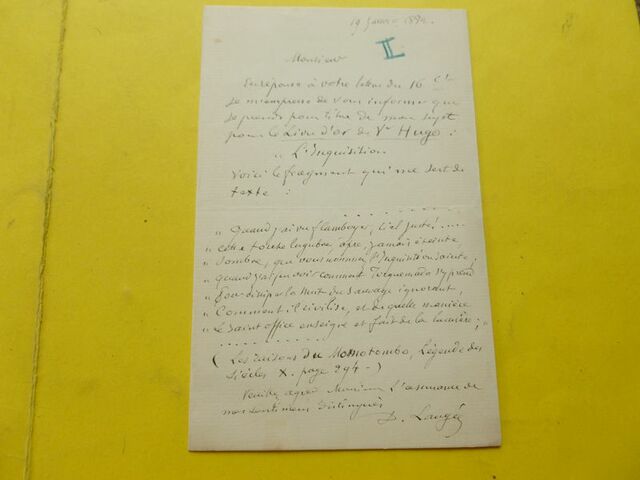 19 Janvier 1882.
II
Monsieur
En réponse à votre lettre du 16 Ct
je m'empresse de vous informer que
je prends pour titre de mon sujet
pour le Livre d'or de Vor Hugo :
" L'Inquisition
Voici le fragment qui me sert de
texte :
" Quand j'ai vu flamboyer, ciel juste ! ....
" cette torche lugubre, âpre, jamais éteinte
" Sombre, que vous nommez l'Inquisition Sainte ;
" quand j'ai pu voir comment Torquemada s'y prend
" Pour dissiper la nuit du sauvage ignorant,
" Comment il civilise, et de quelle manière
" Le Saint office enseigne et fait de la lumière ; "
( Les raisons du Momotombo, Légende des
Siècles X. page 294 - )
Veuillez agréer Monsieur l'assurance de
mes sentiments distingués
D. Laugée